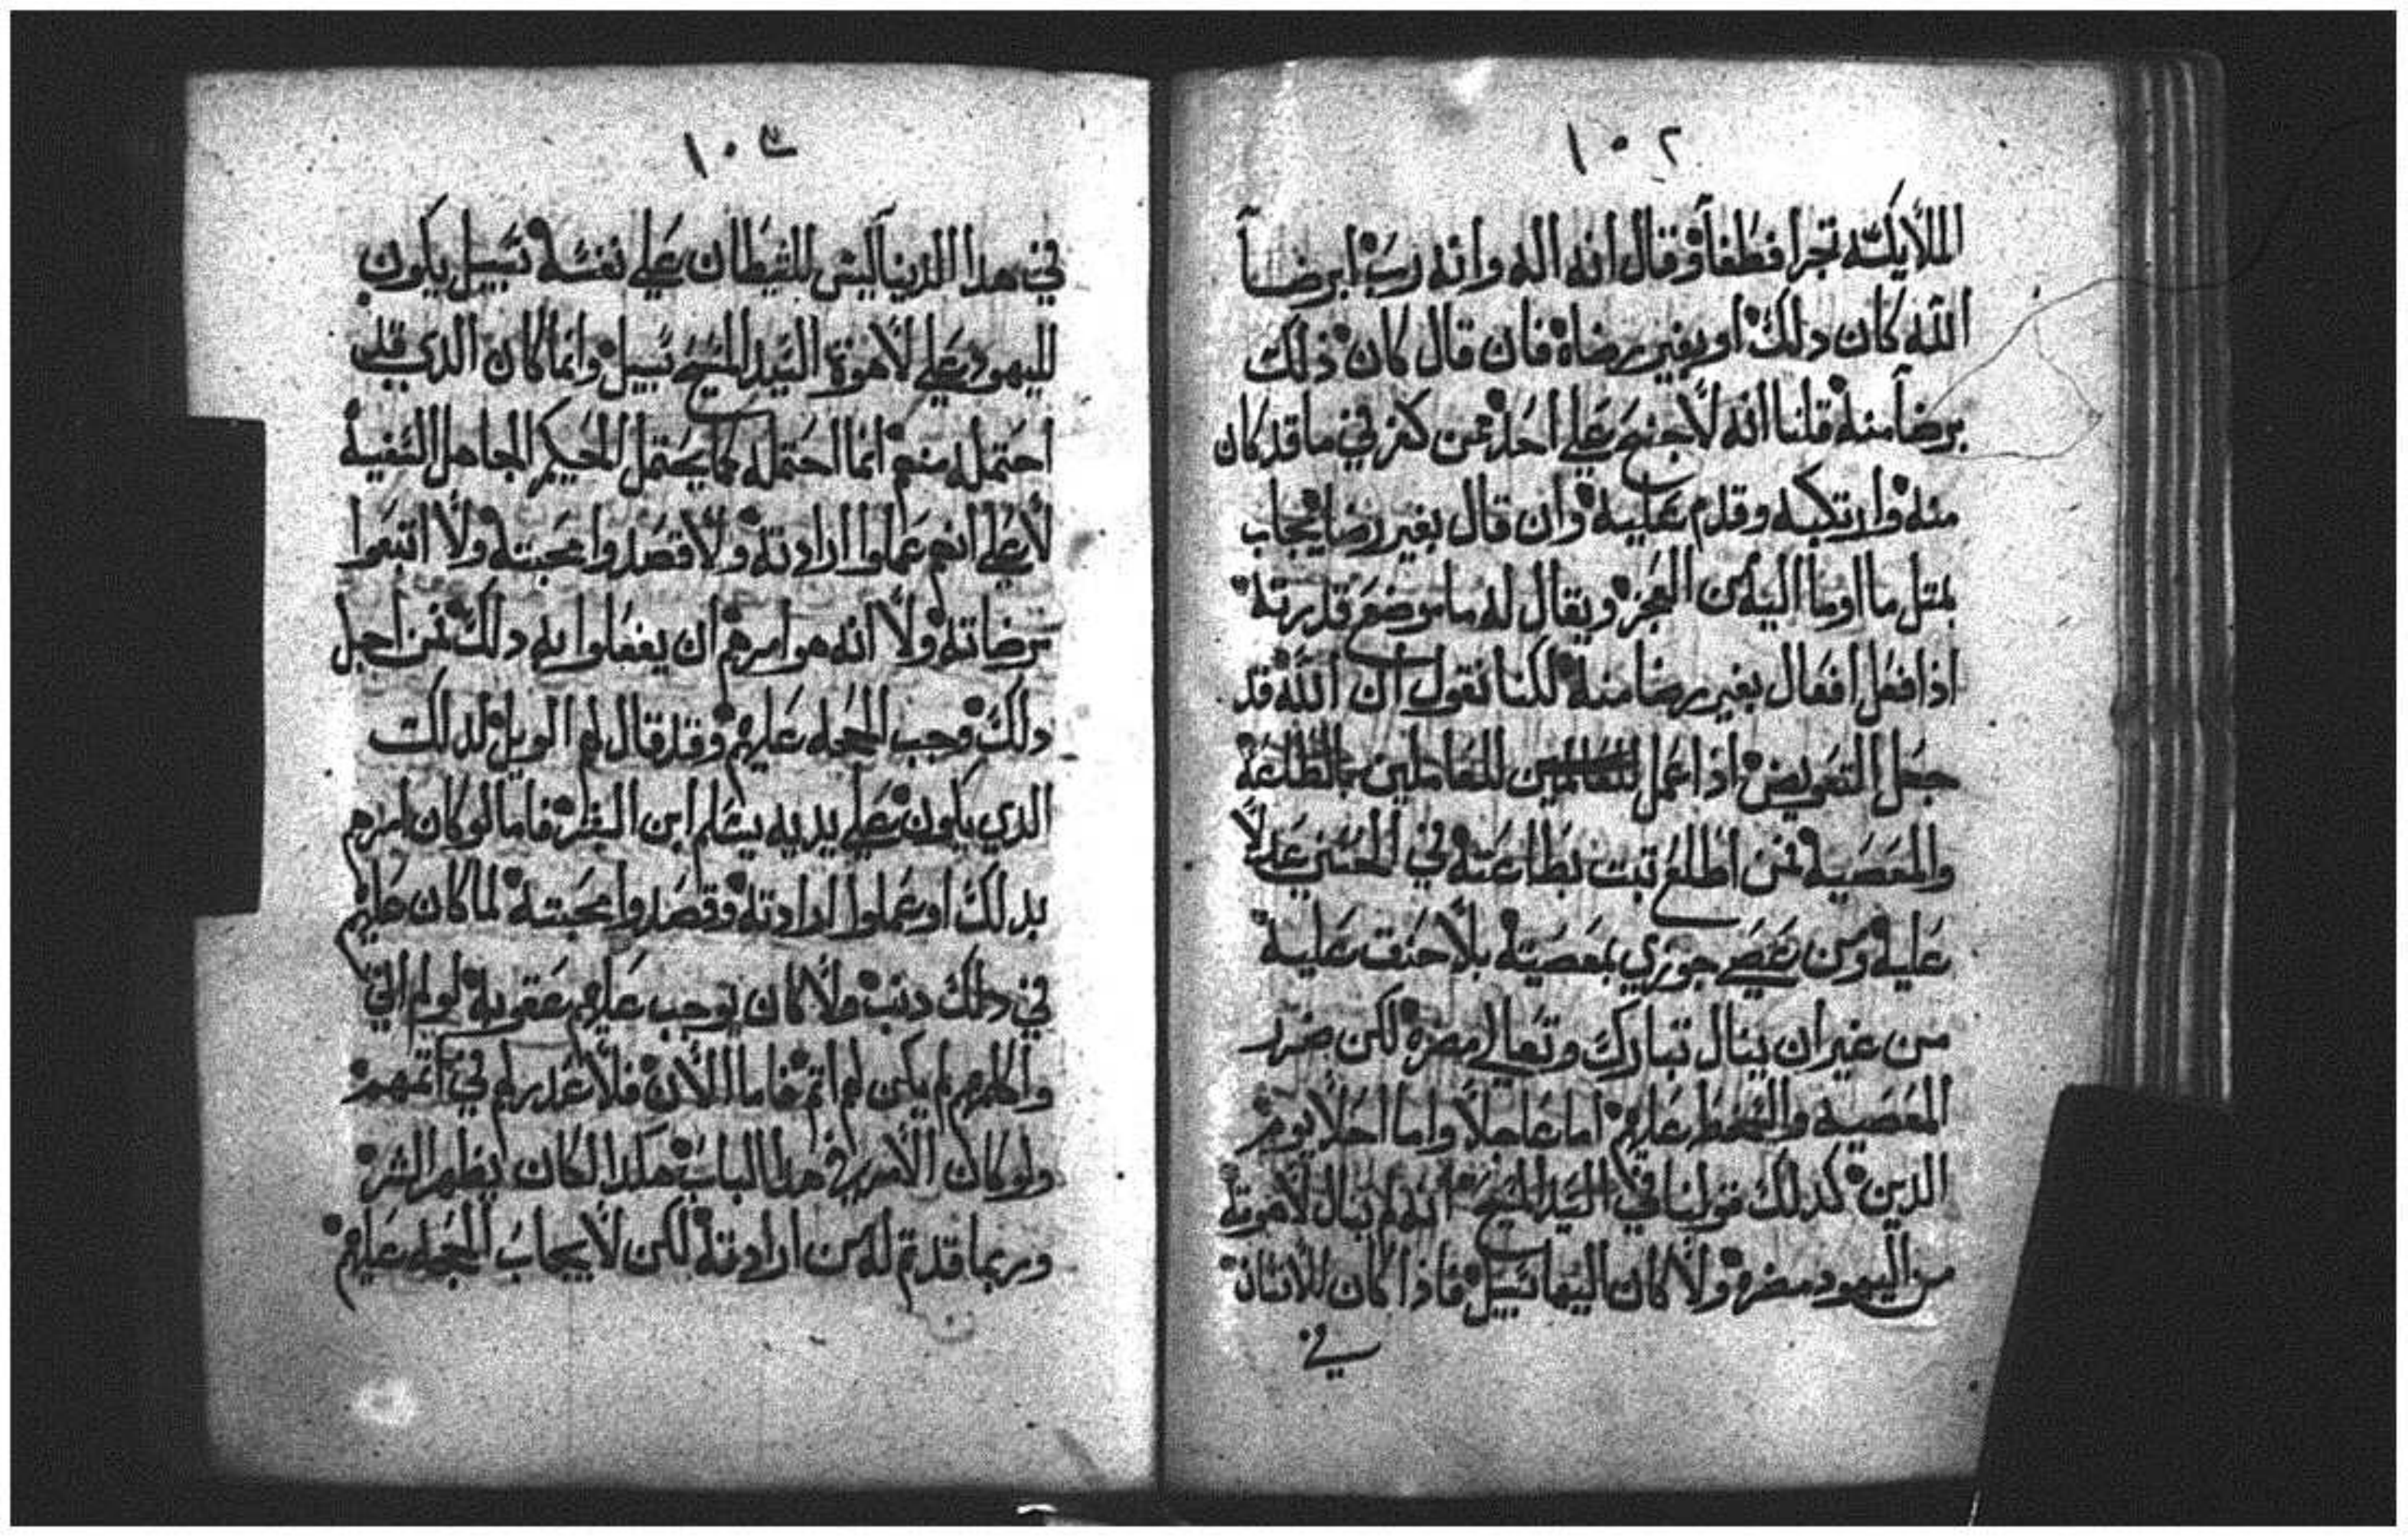 ١٠٢
الملايكه تجرا فطغا وقال انه اله وانه رب ابرضاً
الله كان دلك او بغير رضاه فان قال كان ذلك
برضاً منه قلنا انه لا جنح علي احد ممن كفر في ما قد كان
منه وارتكبه وقدم عليه وان قال بغير رضا يجاب
بمتل ما اوما اليه من العجز ويقال له ما موضع قدرته
اذا فعل افعال بغير رضا منه لكننا نقول ان الله قد
جعل التفويض اذا عمل للعاملين بالطاعة
والمعصية فمن اطلع تبت بطاعته في الحسني عدلاً
عليه ومن عصي جوزي بمعصيته بلا حنق عليه
من غير ان ينال تبارك وتعالي مضره لكن ضرر
المعصيه والسخط عليهم اما عاجلاً واما اجلا يوم
الدين كدلك قولنا في السيد المسيح انه لم ينال لاهوته
من اليهود مضره ولا كان اليها سبيل فاذا كان للانسان
في
١٠٣
في هدا الدنيا ليس للشيطان علي نفسه سبيل يكون
لليهود علي لاهوة السيد المسيح سبيل وانما كان الدي
احتمله منهم انما احتمله كما يحتمل الحكيم الجاهل السفيه
لا علي انهم عملوا ارادته ولا قصدوا محبته ولا اتبعوا
مرضاته ولا انه هو امرهم ان يفعلوا به دلك فمن اجل
دلك وجب الحجه عليهم وقد قال لهم الويل لدلك
الدي يكون علي يديه يسلم ابن البشر فاما لو كان امرهم
بدلك او عملوا ارادته وقصدوا محبته لما كان عليهم
في دلك دنب ولا كان يوجب عليهم عقوبه لو لم اتي
واكلمهم لم يكن لهم اتم فاما الان فلا عدر لهم في اتمهم
ولو كان الامر في هدا الباب هكدا لكان يظهر الشر
وربما قد تم له من ارادته لكن لا يجاب الحجه عليهم